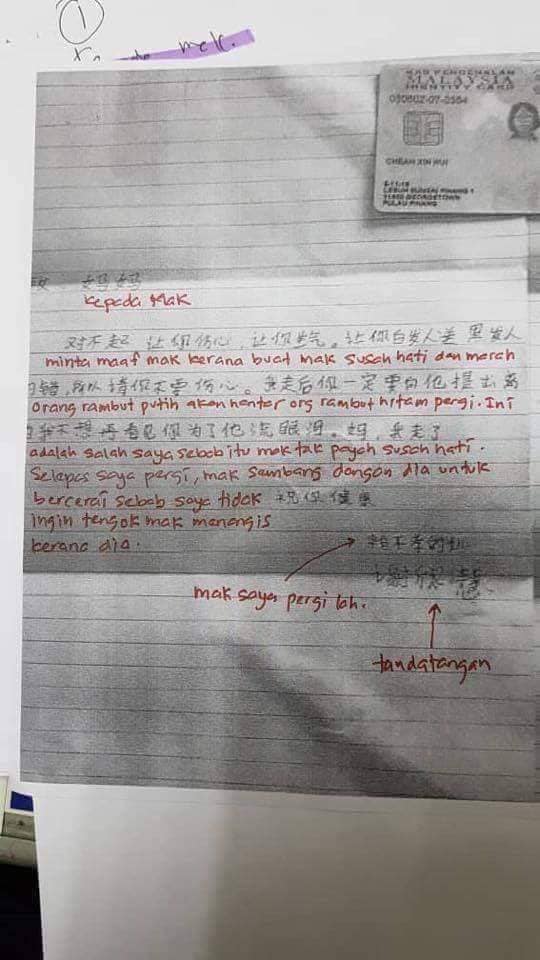 ①
mek.
KAD PENGENALAN
MALAYSIA
IDENTITY CARD
LEBUH SUNGAI PINANG 1
GEORGETOWN
PULAU PINANG
妈妈
kepada Mak
对不起 让你伤心，让你生气。让你白发人送黑发人
minta maaf mak kerana buat mak susah hati dan marah
的错，所以请你不要伤心。我走后你一定要向他提出离
orang rambut putih akan hantar org rambut hitam pergi. Ini
我不想再看见你为了他流眼泪。妈，我走了
adalah salah saya sebab itu mak tak payah susah hati.
Selepas saya pergi, mak sambang dengan dia untuk
bercerai sebab saya tidak 祝你健康
ingin tengok mak menangis
kerana dia.
不孝的
mak saya pergi lah.
tandatangan